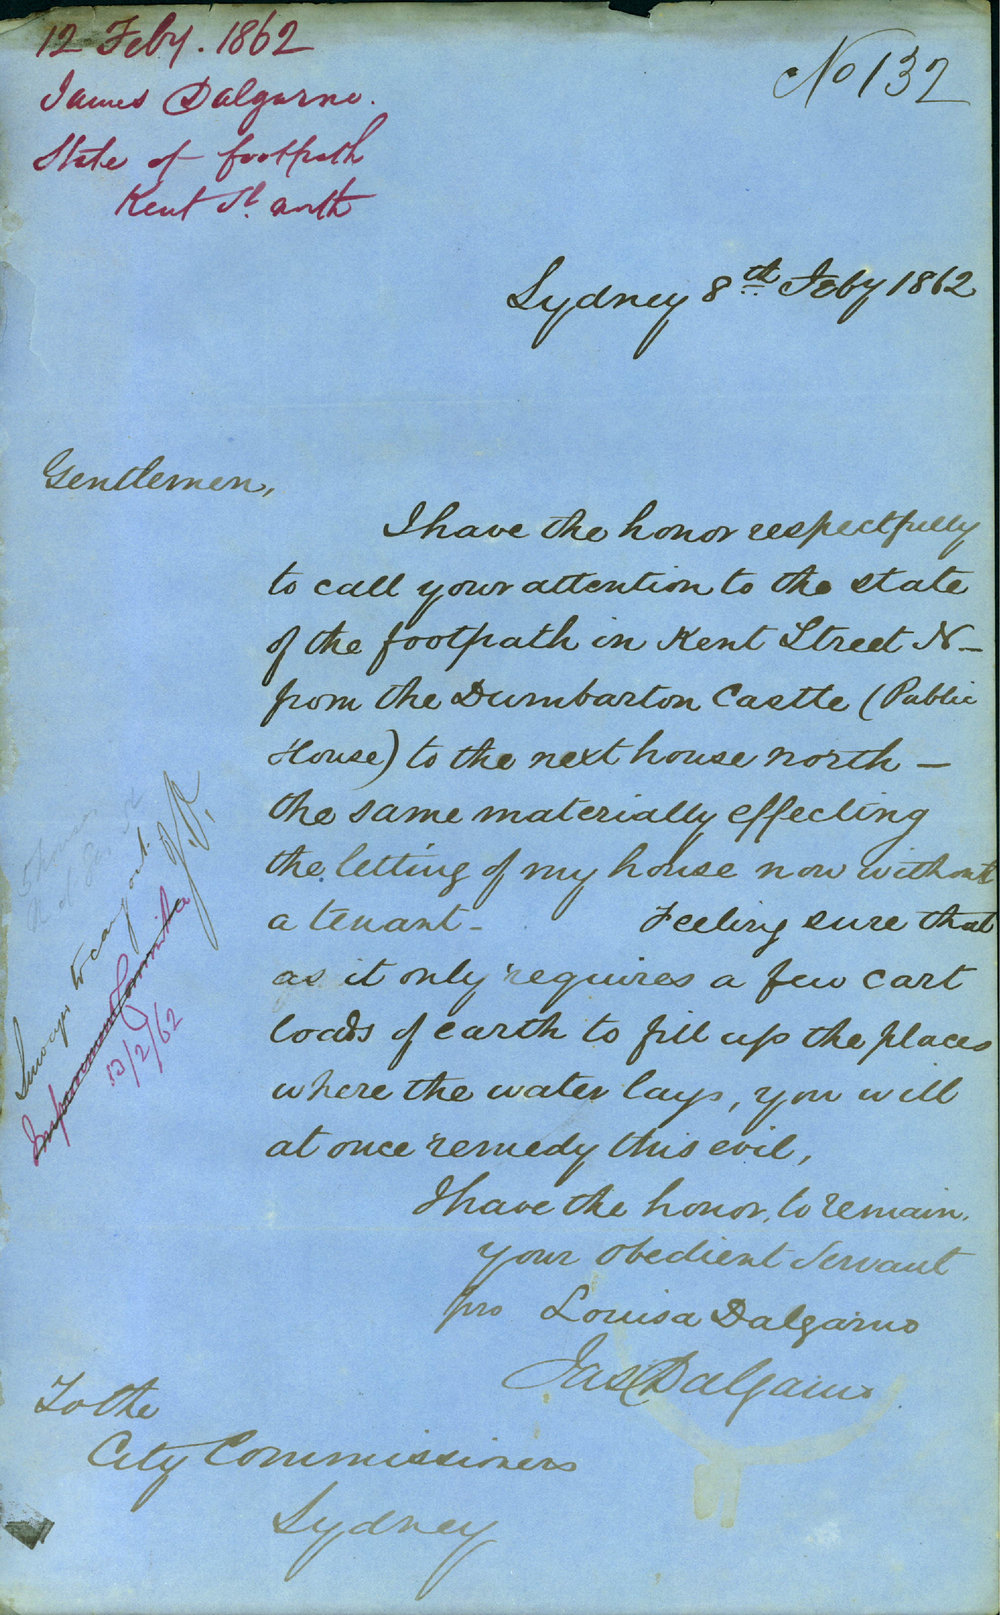 12 Feby. 1862
James Dalgarno.
State of footpath
Kent St. north
No 132
Sydney 8th Feby 1862
Gentlemen,
I have the honor respectfully
to call your attention to the state
of the footpath in Kent Street N–
from the Dumbarton Castle (Public
House) to the next house north –
the same materially effecting
the letting of my house now without
a tenant – Feeling sure that
as it only requires a few cart
loads of earth to fill up the places
where the water lays, you will
at once remedy this evil,
I have the honor, to remain,
your obedient Servant
pro Louisa Dalgarno
Jas Dalgarno
To the
City Commissioners
Sydney
to carry out
Improvement Committee
/2/62